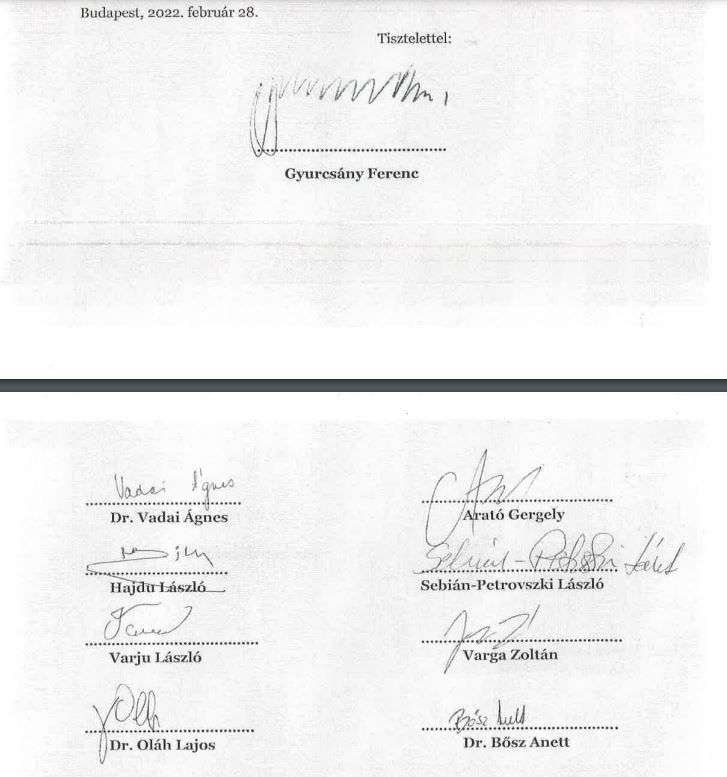 Budapest, 2022. február 28.
Tisztelettel:
Gyurcsány Ferenc
Vadai Ágnes
Dr. Vadai Ágnes
Arató Gergely
Hajdu László
Sebián-Petrovszki László
Varju László
Varga Zoltán
Bősz Anett
Dr. Oláh Lajos
Dr. Bősz Anett